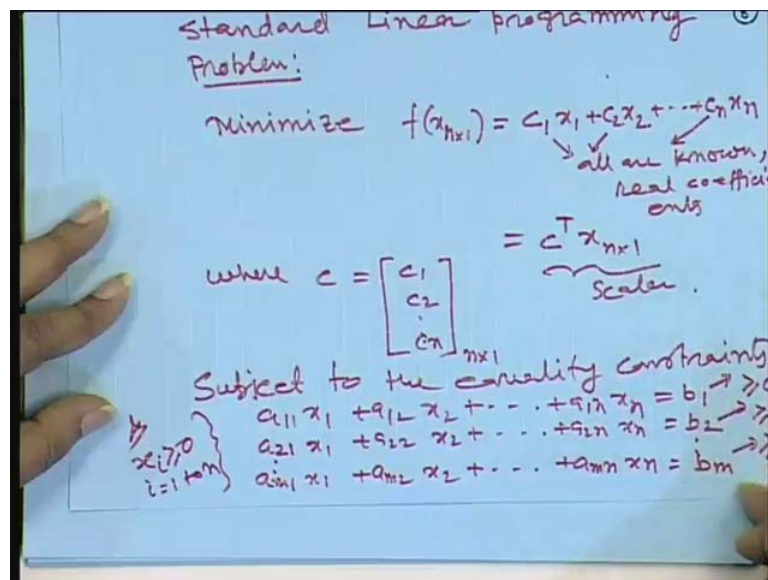 Standard Linear programming ⑥
Problem:
Minimize f(x_{n×1}) = c_1 x_1 + c_2 x_2 + ... + c_n x_n
all are known,
real coeffici
ents
= c^T x_{n×1}
where c = [c_1 c_2 . c_n]_{n×1}
Scalar.
Subject to the equality constraints
a_{11} x_1 + a_{12} x_2 + - - . + a_{1n} x_n = b_1 → ≥0
a_{21} x_1 + a_{22} x_2 + - - . + a_{2n} x_n = b_2 → ≥
x_i ≥ 0
i = 1 to n
a_{m1} x_1 + a_{m2} x_2 + - - . + a_{mn} x_n = b_m → ≥